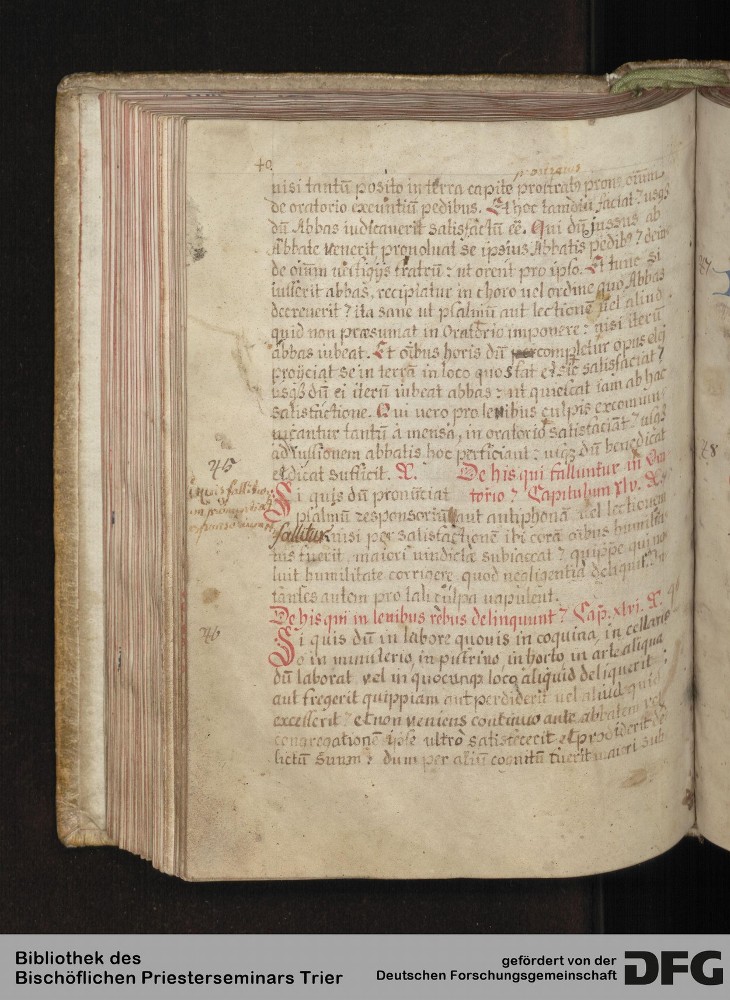 40
nisi tantū posito in terra capite prostratꝰ pronꝰ oīum
de oratorio exeuntiū pedibus. Et hoc tamdiu faciat ? usq3
dū Abbas iudicauerit satisfactū eē. Qui dū jussus ab
Abbate venerit prouoluat se ipsius Abbatis pedibꝰ ? dein
de oīum vestigijs fratrū : ut orent pro ipso. Et tunc si
iusserit abbas, recipiatur in choro uel ordine quo Abbas
decreuerit ? ita sane ut psalmū aut lectionē uel aliud
quid non præsumat in Oratorio imponere : nisi iterū
abbas iubeat. Et oībus horis dū completur opus
proijciat se in terrā in loco quo stat et sic satisfaciat ?
usq3 dū ei iterū iubeat abbas : ut quiescat iam ab hac
satisfactione. Qui uero pro leuibus culpis excomuni
cantur tantū à mensa, in oratorio satisfaciāt ? usq3
ad iussionem abbatis hoc perficiant : usq3 dū benedicat
et dicat sufficit. R. De his qui falluntur in Ora
45
Si quis dū pronūciat torio ? Capitulum xlv. R.
psalmū responsoriū aut antiphonā vel lectionem
fallitur nisi per satisfactionem ibi corā oībus humilia
tus fuerit, maiori uindictæ subiaceat ? quippe qui no
luit humilitate corrigere quod negligentia deliquit.
fantes autem pro tali culpa vapulent.
De his qui in leuibus rebus delinquunt ? Cap. xlvi. R.
46
Si quis dū in labore quouis in coquina, in cellario
in ministerio, in pistrino, in horto, in arte aliqua
dū laborat vel in quocunq3 loco aliquid deliquerit ;
aut fregerit quippiam aut perdiderit uel aliud quid
excesserit ? et non veniens continuo ante abbatem vel
congregationē ipse ultrò satisfecerit et prodiderit de
lictū suum ? dum per aliū cognitū fuerit maiori sub
Bibliothek des
Bischöflichen Priesterseminars Trier
gefördert von der
Deutschen Forschungsgemeinschaft
DFG